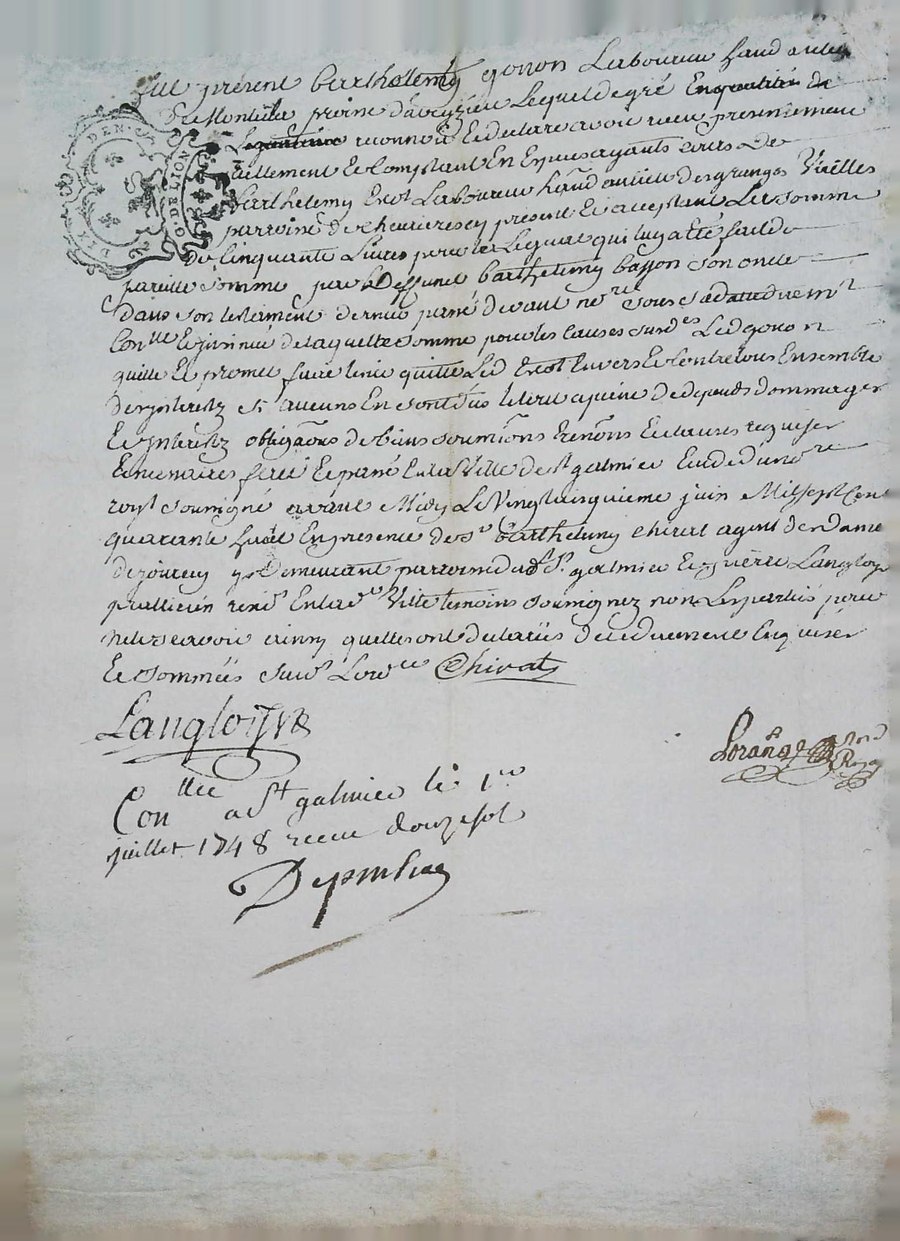 Fut présent Barthelemy gonon Laboureur hand au lieu
prōinē d'aveyzieu Lequel de gré Enqualitée de
Legataire reconnoit Et declare avoir receu presentement
Réellement Et Comptant En Especes ayants cours De
Barthelemy Laboureur hānd au lieu des granges Vieilles
parroine de chevrieres cy présent Et acceptant La somme
De Cinquante Livres pour le Leguat qui luy a été fait de
pareille somme par le Deffunct Barthelemy Basson son oncle
Dans son testament dernier passé devant nore sous sa datte duemt
Conllé Et jnsinué de laquelle somme pour les causes susdes Led gonon
quitte Et promet faire tenir quitte Led Envers Et Contre tous Ensemble
Des jnterestz sy aucuns En sont dus le tout a peine de depends dommages
Et jnterestz obligaōns de biens soumiōns renōns Et clauses requises
Et necessaires fait Et passé En la Ville de St galmier Etude du nore
royal soussigné avant Midy Le Vingt cinquieme juin Mil sept Cent
quarante huit En presence de sr Barthelemy Chirat agent de dame
de jourcey y Demeurant parroine dud St galmier Et pierre Langlois
pratticien residt En lade Ville temoins soussignez non Les parties pour
ne le scavoir ainsy quelles ont declarées de ce duement Enquises
Et sommées suivt Lordce Chirat
Langlois
Conllée a St galmier le 1er
juillet 1748 receu douze sols